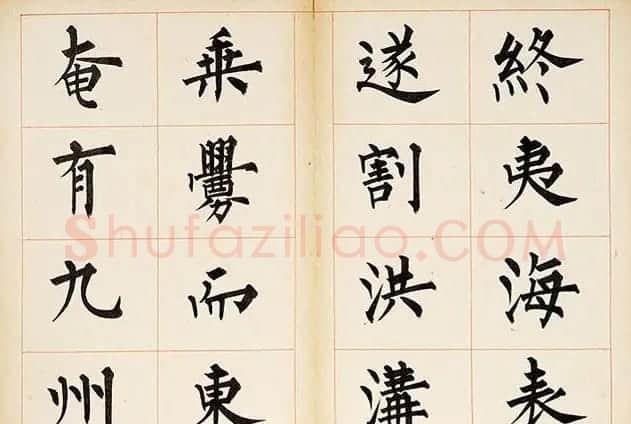 終夷海表
遂割洪溝
乘釁而東
奄有九州
Shufaziliao.COM